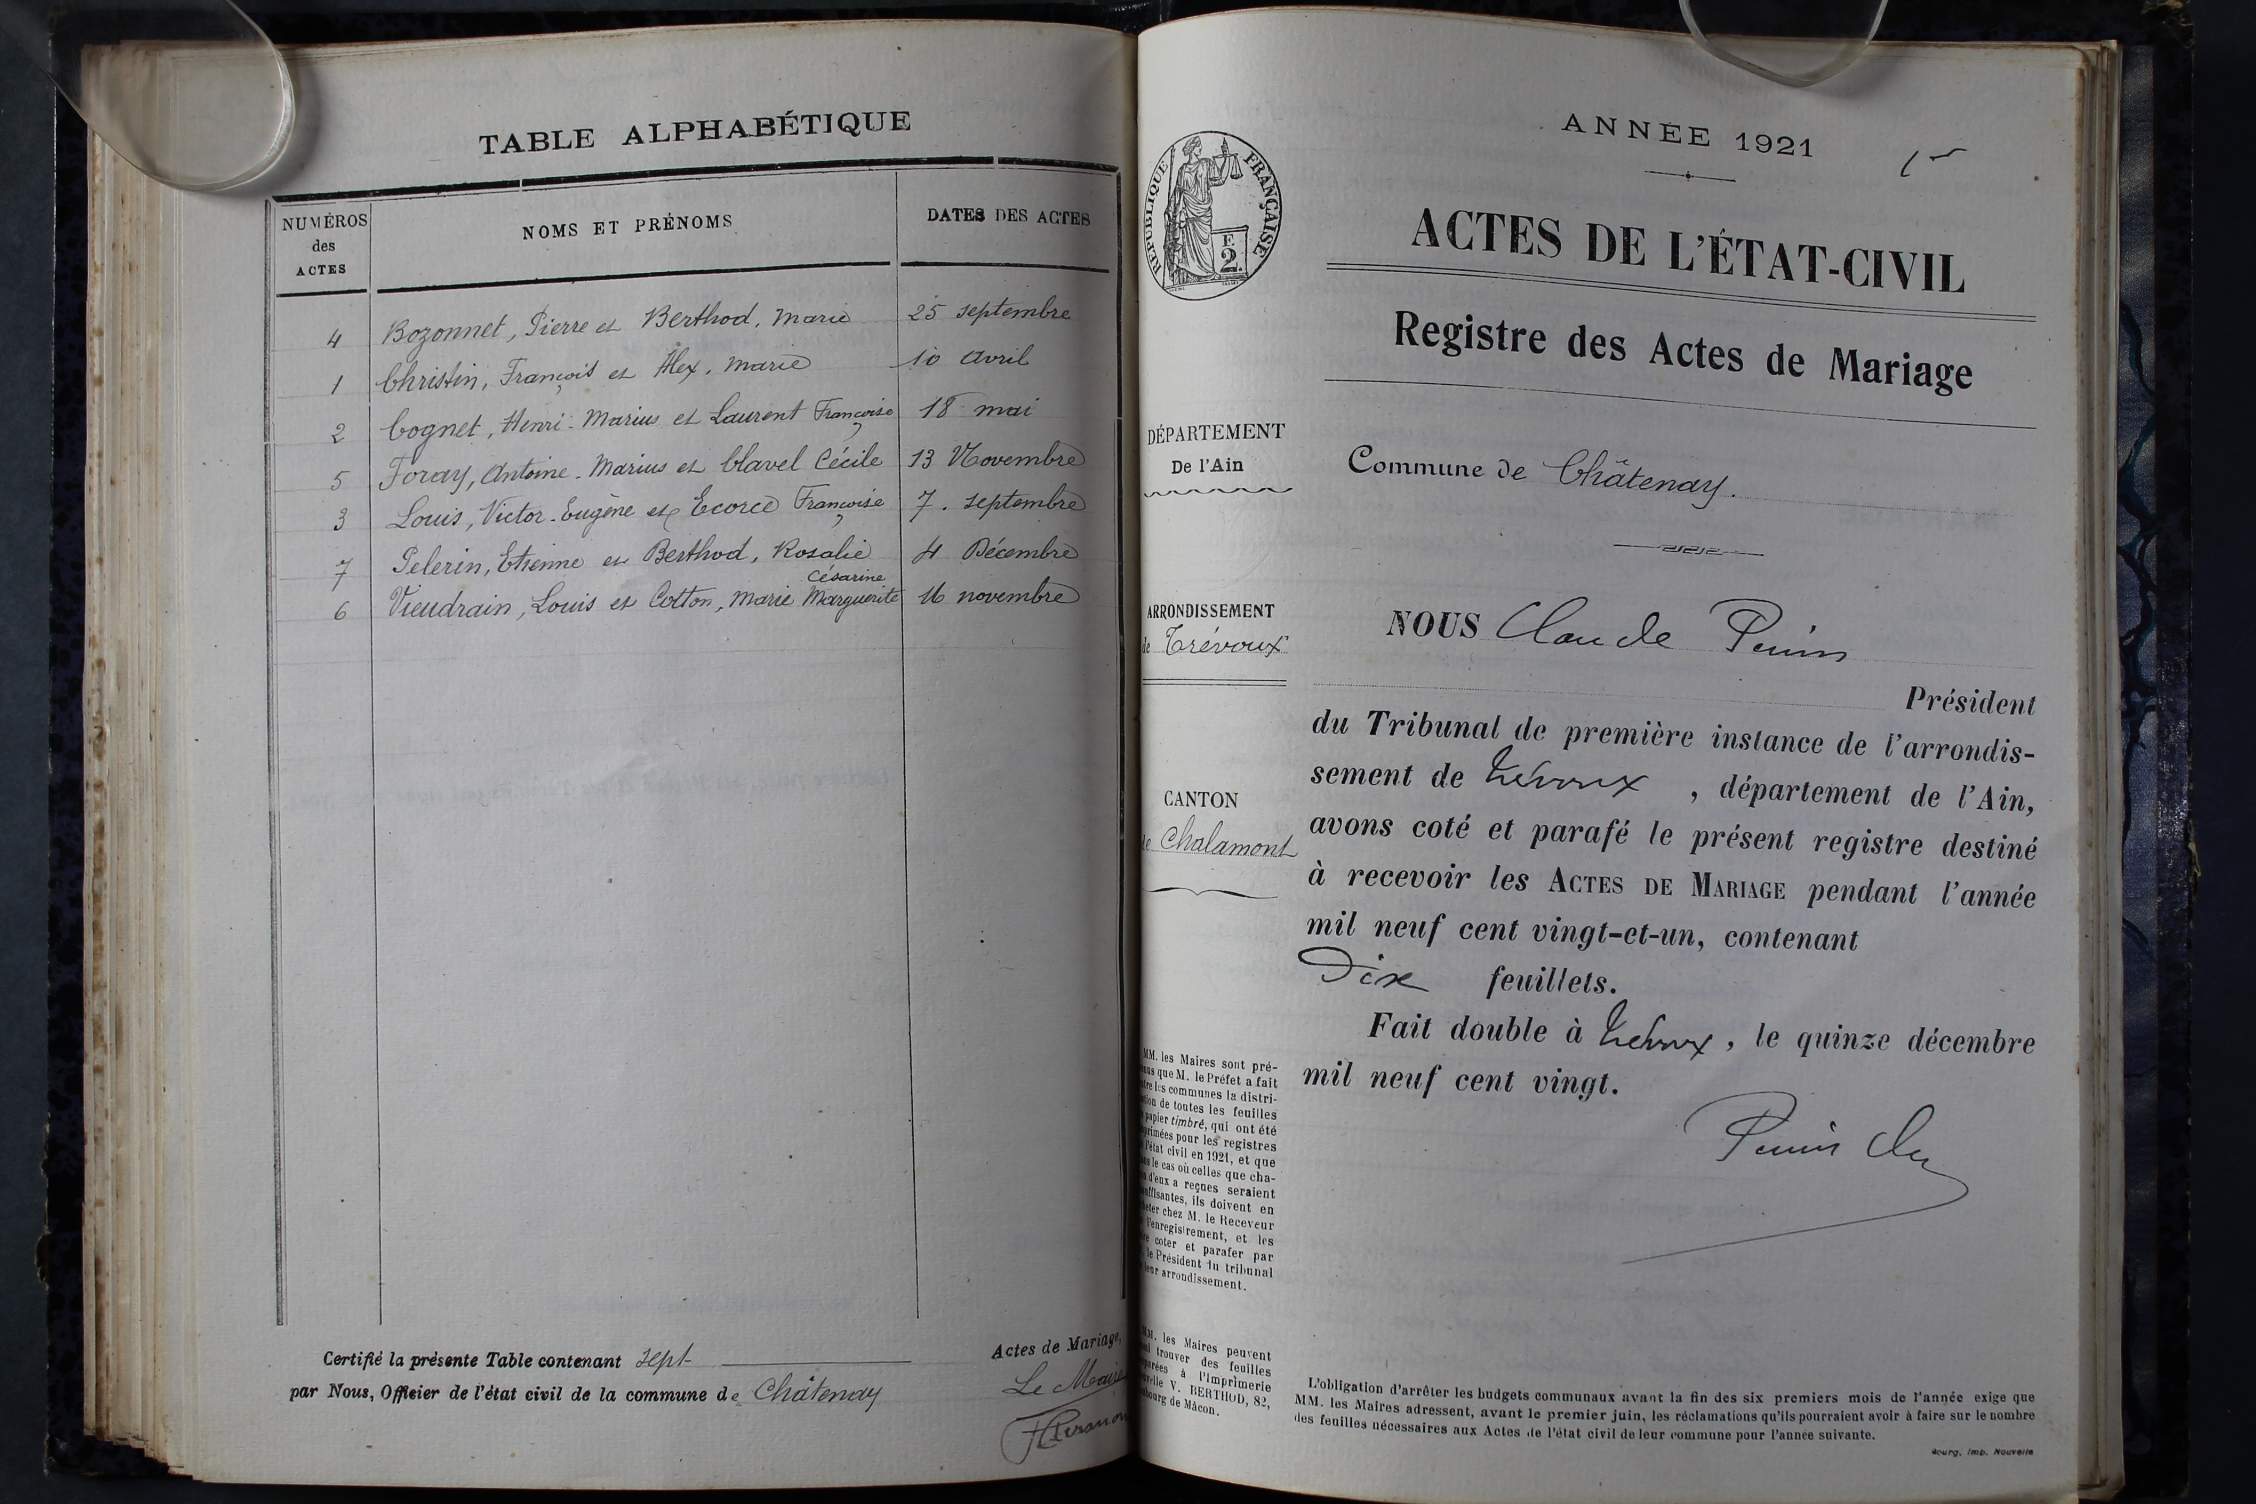 TABLE ALPHABÉTIQUE
NUMÉROS des ACTES
NOMS ET PRÉNOMS
DATES DES ACTES
4 Bozonnet, Pierre et Berthod, Marie 25 septembre
1 Christin, François et Alex, Marie 10 avril
2 Cognet, Henri-Marius et Laurent Françoise 18 mai
5 Foray, Antoine-Marius et Clavel Cécile 13 Novembre
3 Louis, Victor-Eugène et Ecorce Françoise 7. septembre
7 Pelerin, Etienne et Berthod, Rosalie 4 Décembre
Césarine
6 Vieudrain, Louis et Cotton, Marie Marguerite 16 novembre
Certifié la présente Table contenant sept Actes de Mariage,
par Nous, Officier de l'état civil de la commune de Châtenay Le Maire
ANNÉE 1921
RÉPUBLIQUE FRANÇAISE
F.
2.
ACTES DE L'ÉTAT-CIVIL
Registre des Actes de Mariage
DÉPARTEMENT
De l'Ain
Commune de Châtenay.
ARRONDISSEMENT
de Trévoux
CANTON
de Chalamont
NOUS Claude
Président
du Tribunal de première instance de l'arrondis-
sement de Trévoux, département de l'Ain,
avons coté et parafé le présent registre destiné
à recevoir les ACTES DE MARIAGE pendant l'année
mil neuf cent vingt-et-un, contenant
Dix feuillets.
Fait double à Trévoux, le quinze décembre
mil neuf cent vingt.
MM. les Maires sont pré-
que M. le Préfet a fait
les communes la distri-
de toutes les feuilles
papier timbré, qui ont été
pour les registres
l'état civil en 1921, et que
le cas où celles que cha-
d'eux a reçues seraient
ils doivent en
chez M. le Receveur
l'enregistrement, et les
coter et parafer par
le Président du tribunal
leur arrondissement.
MM. les Maires peuvent
trouver des feuilles
à l'imprimerie
V. BERTHOD, 82,
de Mâcon.
L'obligation d'arrêter les budgets communaux avant la fin des six premiers mois de l'année exige que
MM. les Maires adressent, avant le premier juin, les réclamations qu'ils pourraient avoir à faire sur le nombre
des feuilles nécessaires aux Actes de l'état civil de leur commune pour l'année suivante.
Bourg, Imp. Nouvelle